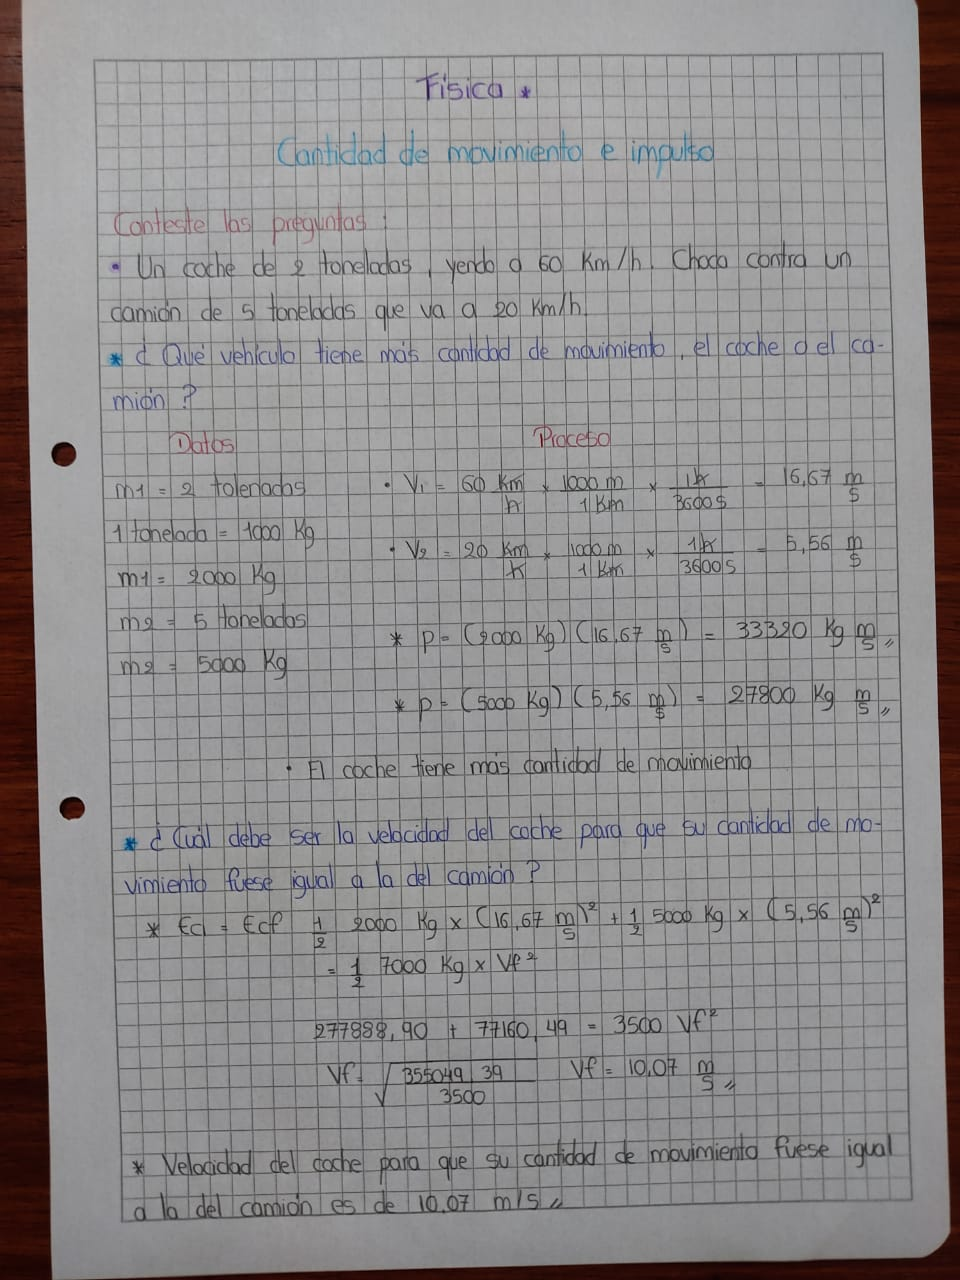 Física *
Cantidad de movimiento e impulso
Conteste las preguntas:
• Un coche de 2 toneladas, yendo a 60 Km/h. Choca contra un
camión de 5 toneladas que va a 20 Km/h.
* ¿ Qué vehículo tiene más cantidad de movimiento, el coche o el ca-
mión ?
Datos
Proceso
m1 = 2 tolenadas
• V1 = 60 Km/h × 1000 m/1 Km × 1h/3600 s = 16,67 m/s
1 tonelada = 1000 Kg
• V2 = 20 Km/h × 1000 m/1 Km × 1h/3600 s = 5,56 m/s
m1 = 2000 Kg
m2 = 5 toneladas
* p = (2000 Kg) (16,67 m/s) = 33320 Kg m/s //
m2 = 5000 Kg
* p = (5000 Kg) (5,56 m/s) = 27800 Kg m/s //
• El coche tiene más cantidad de movimiento
* ¿ Cuál debe ser la velocidad del coche para que su cantidad de mo-
vimiento fuese igual a la del camión ?
* Eci = Ecf 1/2 2000 Kg × (16,67 m/s)² + 1/2 5000 Kg × (5,56 m/s)²
= 1/2 7000 Kg × Vf²
277888,90 + 77160,49 = 3500 Vf²
Vf = √355049,39/3500 Vf = 10,07 m/s //
* Velocidad del coche para que su cantidad de movimiento fuese igual
a la del camión es de 10,07 m/s //